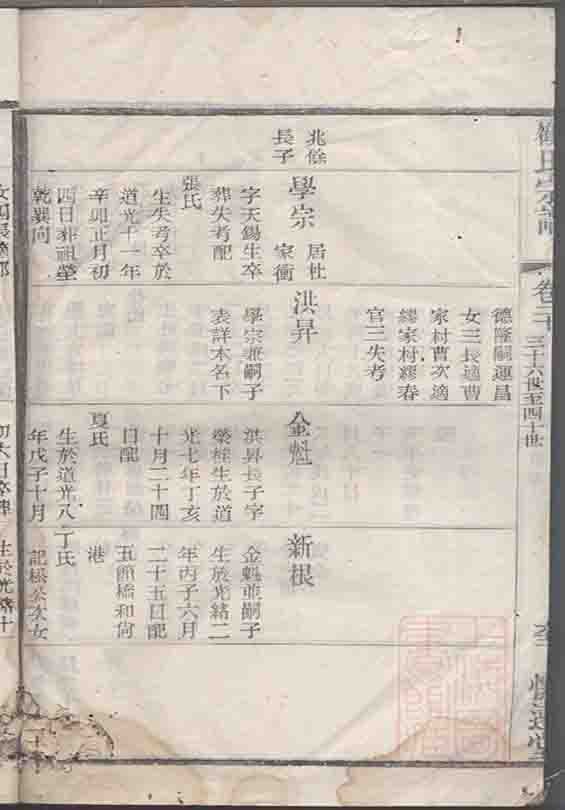 卷二十
三十六世至四十世
德隆嗣運昌
女三長適曹
家村曹次適
繆家村繆春
官三失考
兆餘
長子
學宗
居杜
家衝
字天錫生卒
葬失考配
張氏
生失考卒於
道光十一年
辛卯正月初
四日葬祖塋
乾巽向
洪昇
學宗兼嗣子
表詳本名下
金魁
洪昇長子字
榮桂生於道
光七年丁亥
十月二十四
日配
夏氏
生於道光八
年戊子十月
新根
金魁並嗣子
生於光緒二
年丙子六月
二十五日配
五顯橋和尚
港
丁氏